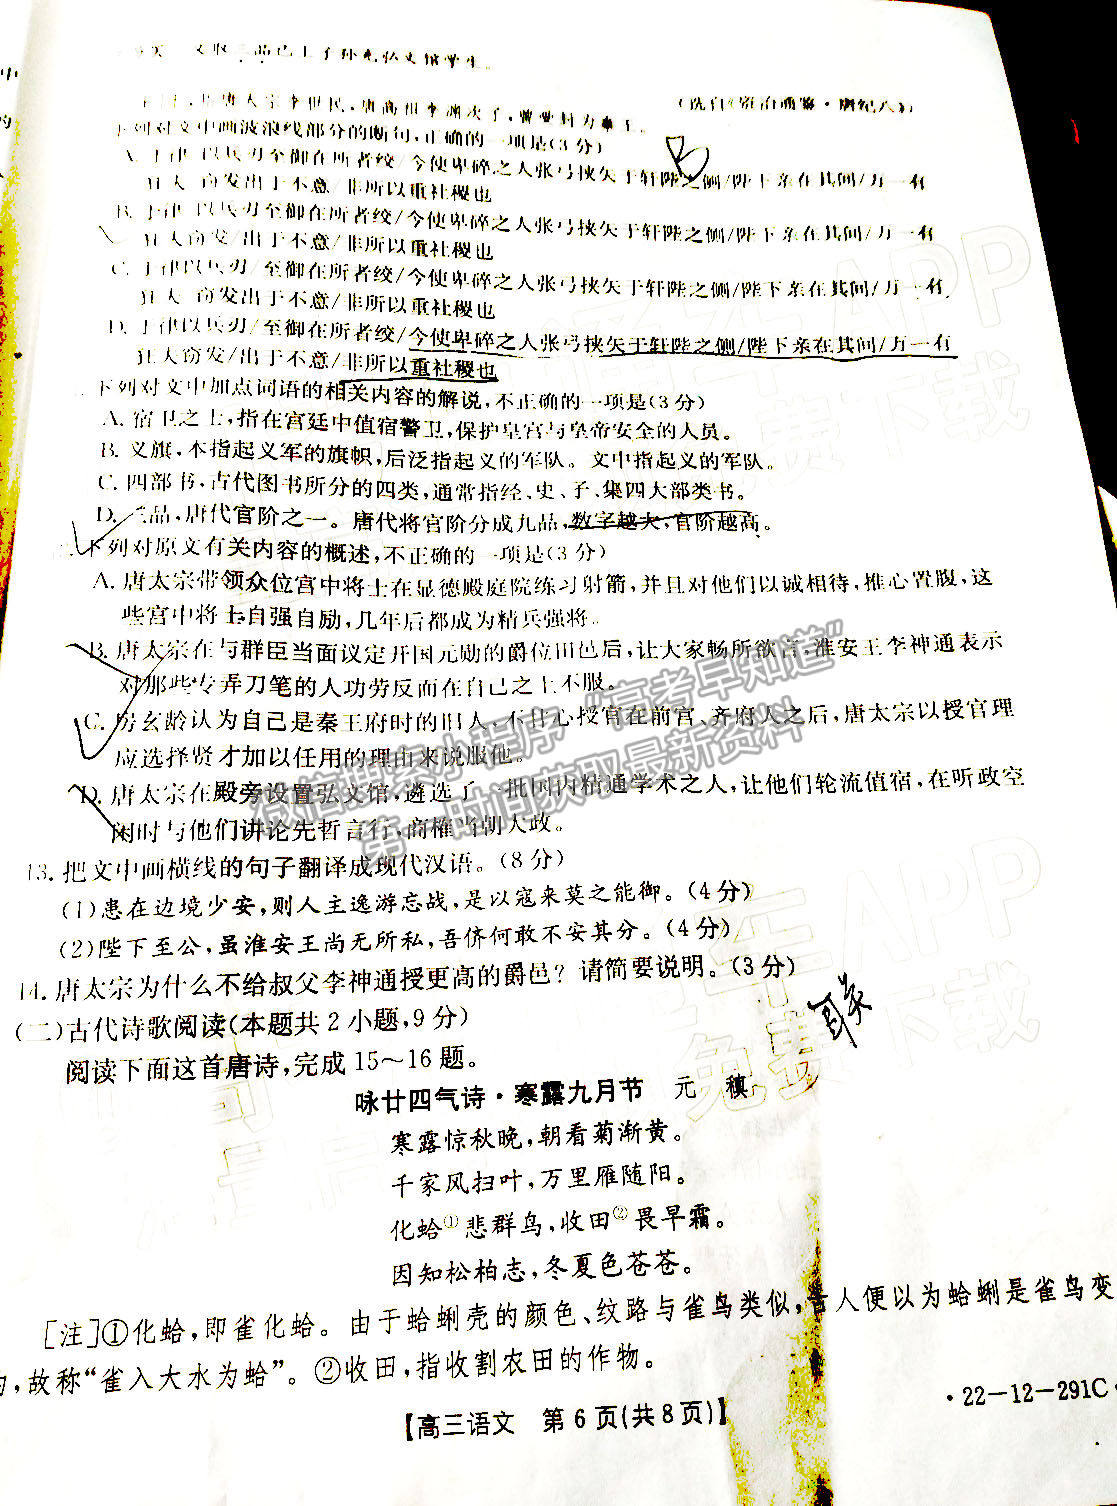 三品已上子孙充弘文馆学生。
(选自《资治通鉴·唐纪八》)
下列对文中画波浪线部分的断句,正确的一项是(3分)
B
以兵刃/至御在所者绞/今使卑碎之人张弓挟矢于轩陛之侧/陛下亲在其间/万一有
出于不意/非所以重社稷也
B.
以兵刃至御在所者绞/今使卑碎之人张弓挟矢于轩陛之侧/陛下亲在其间/万一有
发/出于不意/非所以重社稷也
C.
以兵刃/至御在所者绞/今使卑碎之人张弓挟矢于轩陛之侧/陛下亲在其间/万一有
发出于不意/非所以重社稷也
D.
以兵刃/至御在所者绞/今使卑碎之人张弓挟矢于轩陛之侧/陛下亲在其间/万一有
发/出于不意/非所以重社稷也
下列对文中加点词语的相关内容的解说,不正确的一项是(3分)
A. 宿卫之士,指在宫廷中值宿警卫,保护皇宫与皇帝安全的人员。
B. 义旗,本指起义军的旗帜,后泛指起义的军队。文中指起义的军队。
C. 四部书,古代图书所分的四类,通常指经、史、子、集四大部类书。
D. 三品,唐代官阶之一。唐代将官阶分成九品,数字越大,官阶越高。
下列对原文有关内容的概述,不正确的一项是(3分)
A. 唐太宗带领众位宫中将士在显德殿庭院练习射箭,并且对他们以诚相待,推心置腹,这
些宫中将士自强自励,几年后都成为精兵强将。
B. 唐太宗在与群臣当面议定开国元勋的爵位田邑后,让大家畅所欲言,淮安王李神通表示
对那些专弄刀笔的人功劳反而在自己之上不服。
C. 房玄龄认为自己是秦王府时的旧人,不甘心授官在前宫、齐府人之后,唐太宗以授官理
应选择贤才加以任用的理由来说服他。
D. 唐太宗在殿旁设置弘文馆,遴选了一批国内精通学术之人,让他们轮流值宿,在听政空
闲时与他们讲论先哲言行,商榷当朝大政。
13. 把文中画横线的句子翻译成现代汉语。(8分)
(1)患在边境少安,则人主逸游忘战,是以寇来莫之能御。(4分)
(2)陛下至公,虽淮安王尚无所私,吾侪何敢不安其分。(4分)
14. 唐太宗为什么不给叔父李神通授更高的爵邑?请简要说明。(3分)
(二)古代诗歌阅读(本题共2小题,9分)
阅读下面这首唐诗,完成15~16题。
咏廿四气诗·寒露九月节 元 稹
寒露惊秋晚,朝看菊渐黄。
千家风扫叶,万里雁随阳。
化蛤①悲群鸟,收田②畏早霜。
因知松柏志,冬夏色苍苍。
[注]①化蛤,即雀化蛤。由于蛤蜊壳的颜色、纹路与雀鸟类似,古人便以为蛤蜊是雀鸟变
的,故称“雀入大水为蛤”。②收田,指收割农田的作物。
【高三语文 第6页(共8页)】
·22-12-291C·
微信搜索小程序“高考早知道”
第一时间获取最新资料